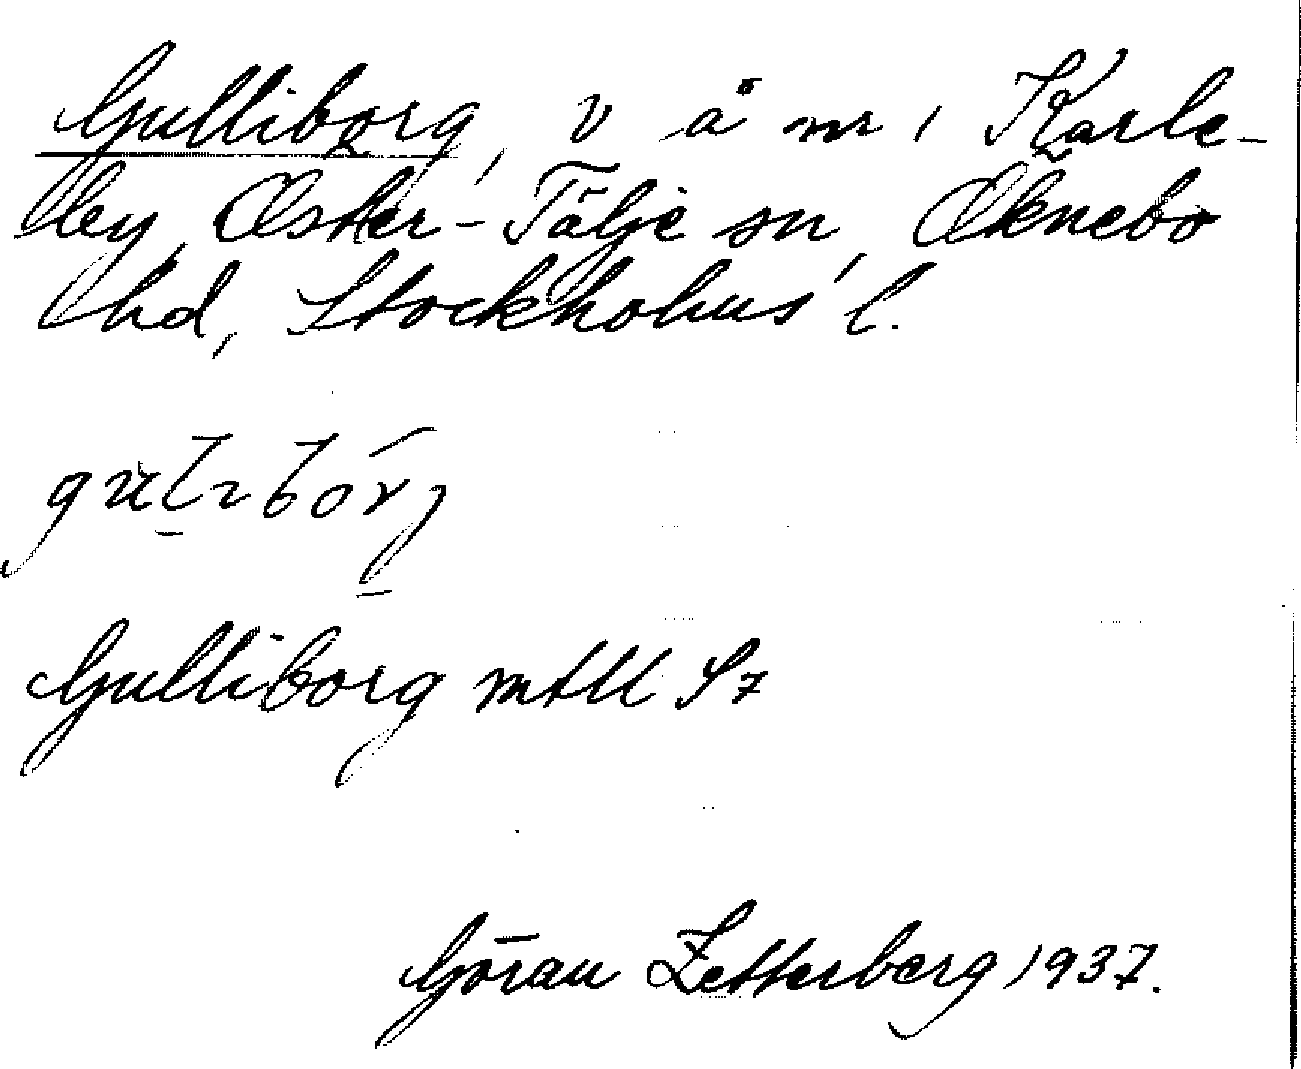 Gulliborg, v å m i Karle-
by, Öster-Tälje sn, Öknebo
hd, Stockholms l.
Gulliborg mtll S7
Göran Zetterberg 1937.